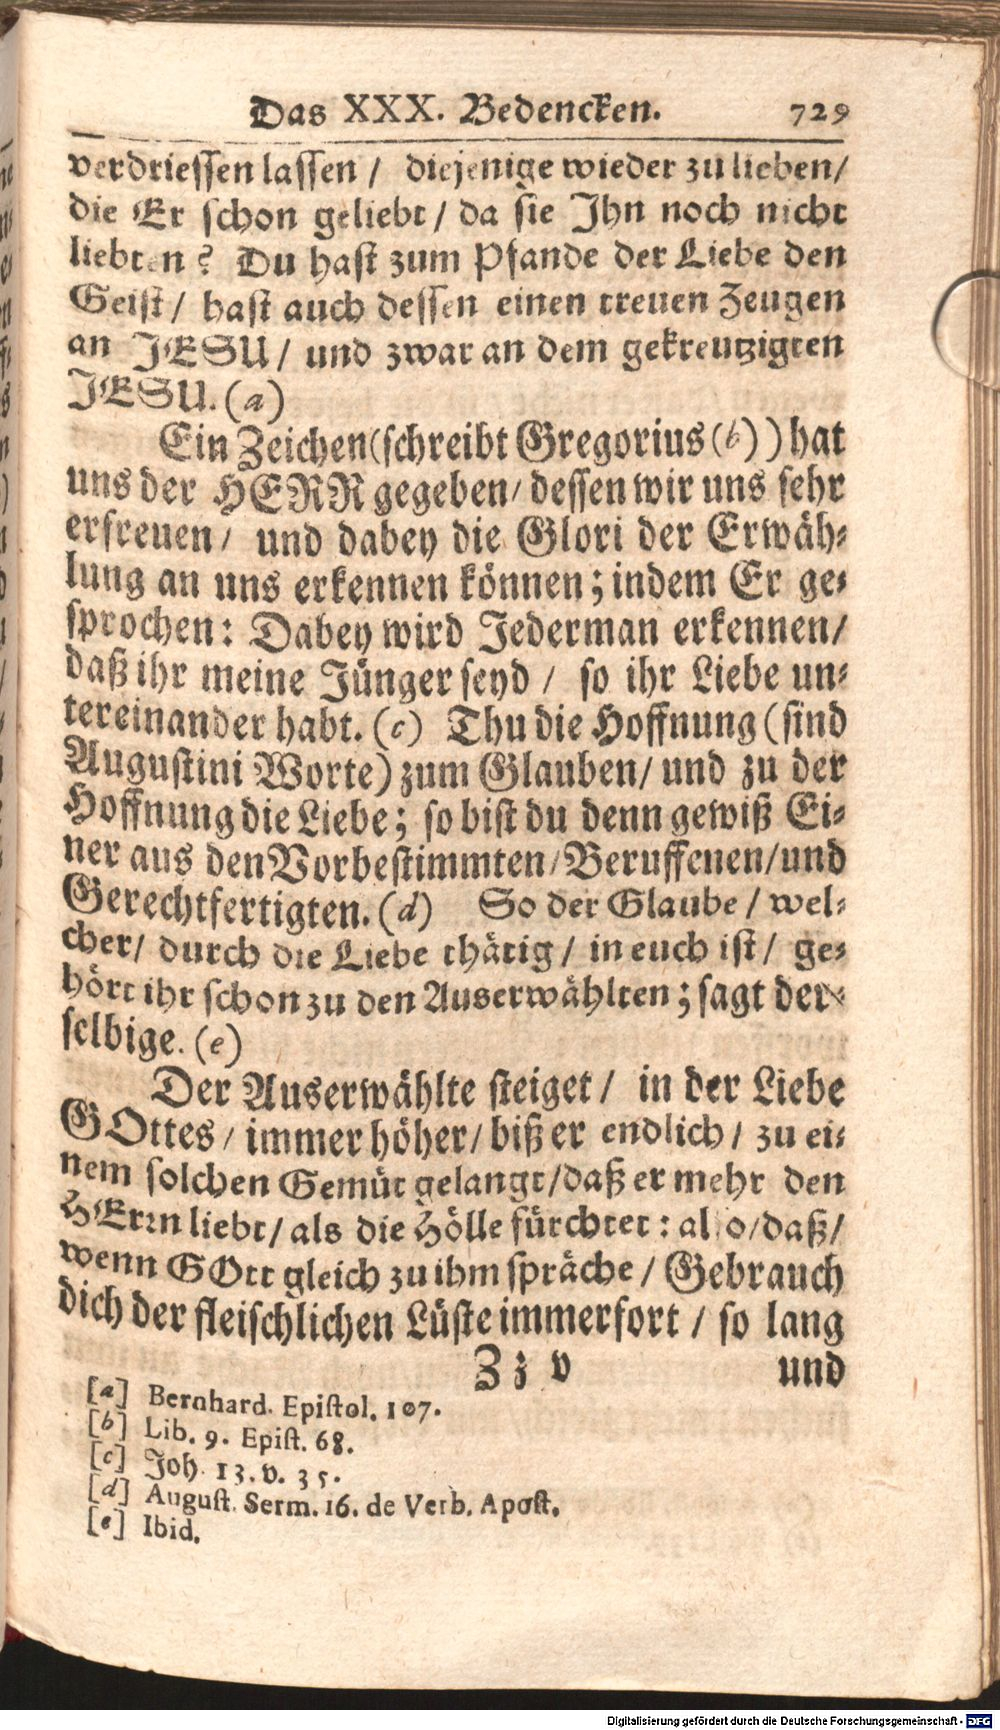 Das XXX. Bedencken. 729
verdriessen lassen / diejenige wieder zu lieben/
die Er schon geliebt / da sie Ihn noch nicht
liebten? Du hast zum Pfande der Liebe den
Geist / hast auch dessen einen treuen Zeugen
an JESU / und zwar an dem gekreutzigten
JESU. (a)
Ein Zeichen (schreibt Gregorius (b)) hat
uns der HERR gegeben / dessen wir uns sehr
erfreuen / und dabey die Glori der Erwäh-
lung an uns erkennen können; indem Er ge-
sprochen: Dabey wird Jederman erkennen/
daß ihr meine Jünger seyd / so ihr Liebe un-
tereinander habt. (c) Thu die Hoffnung (sind
Augustini Worte) zum Glauben/ und zu der
Hoffnung die Liebe; so bist du denn gewiß Ei-
ner aus den Vorbestimmten/ Beruffenen/ und
Gerechtfertigten. (d) So der Glaube / wel-
cher/ durch die Liebe thätig / in euch ist / ge-
hört ihr schon zu den Auserwählten; sagt der-
selbige. (e)
Der Auserwählte steiget / in der Liebe
GOttes / immer höher/ biß er endlich / zu ei-
nem solchen Gemüt gelangt/ daß er mehr den
HErrn liebt/ als die Hölle fürchtet: also/ daß/
wenn GOtt gleich zu ihm spräche / Gebrauch
dich der fleischlichen Lüste immerfort / so lang
Zz v und
[a] Bernhard. Epistol. 107.
[b] Lib. 9. Epist. 68.
[c] Joh. 13. v. 35.
[d] August. Serm. 16. de Verb. Apost.
[e] Ibid.
Digitalisierung gefördert durch die Deutsche Forschungsgemeinschaft - DFG